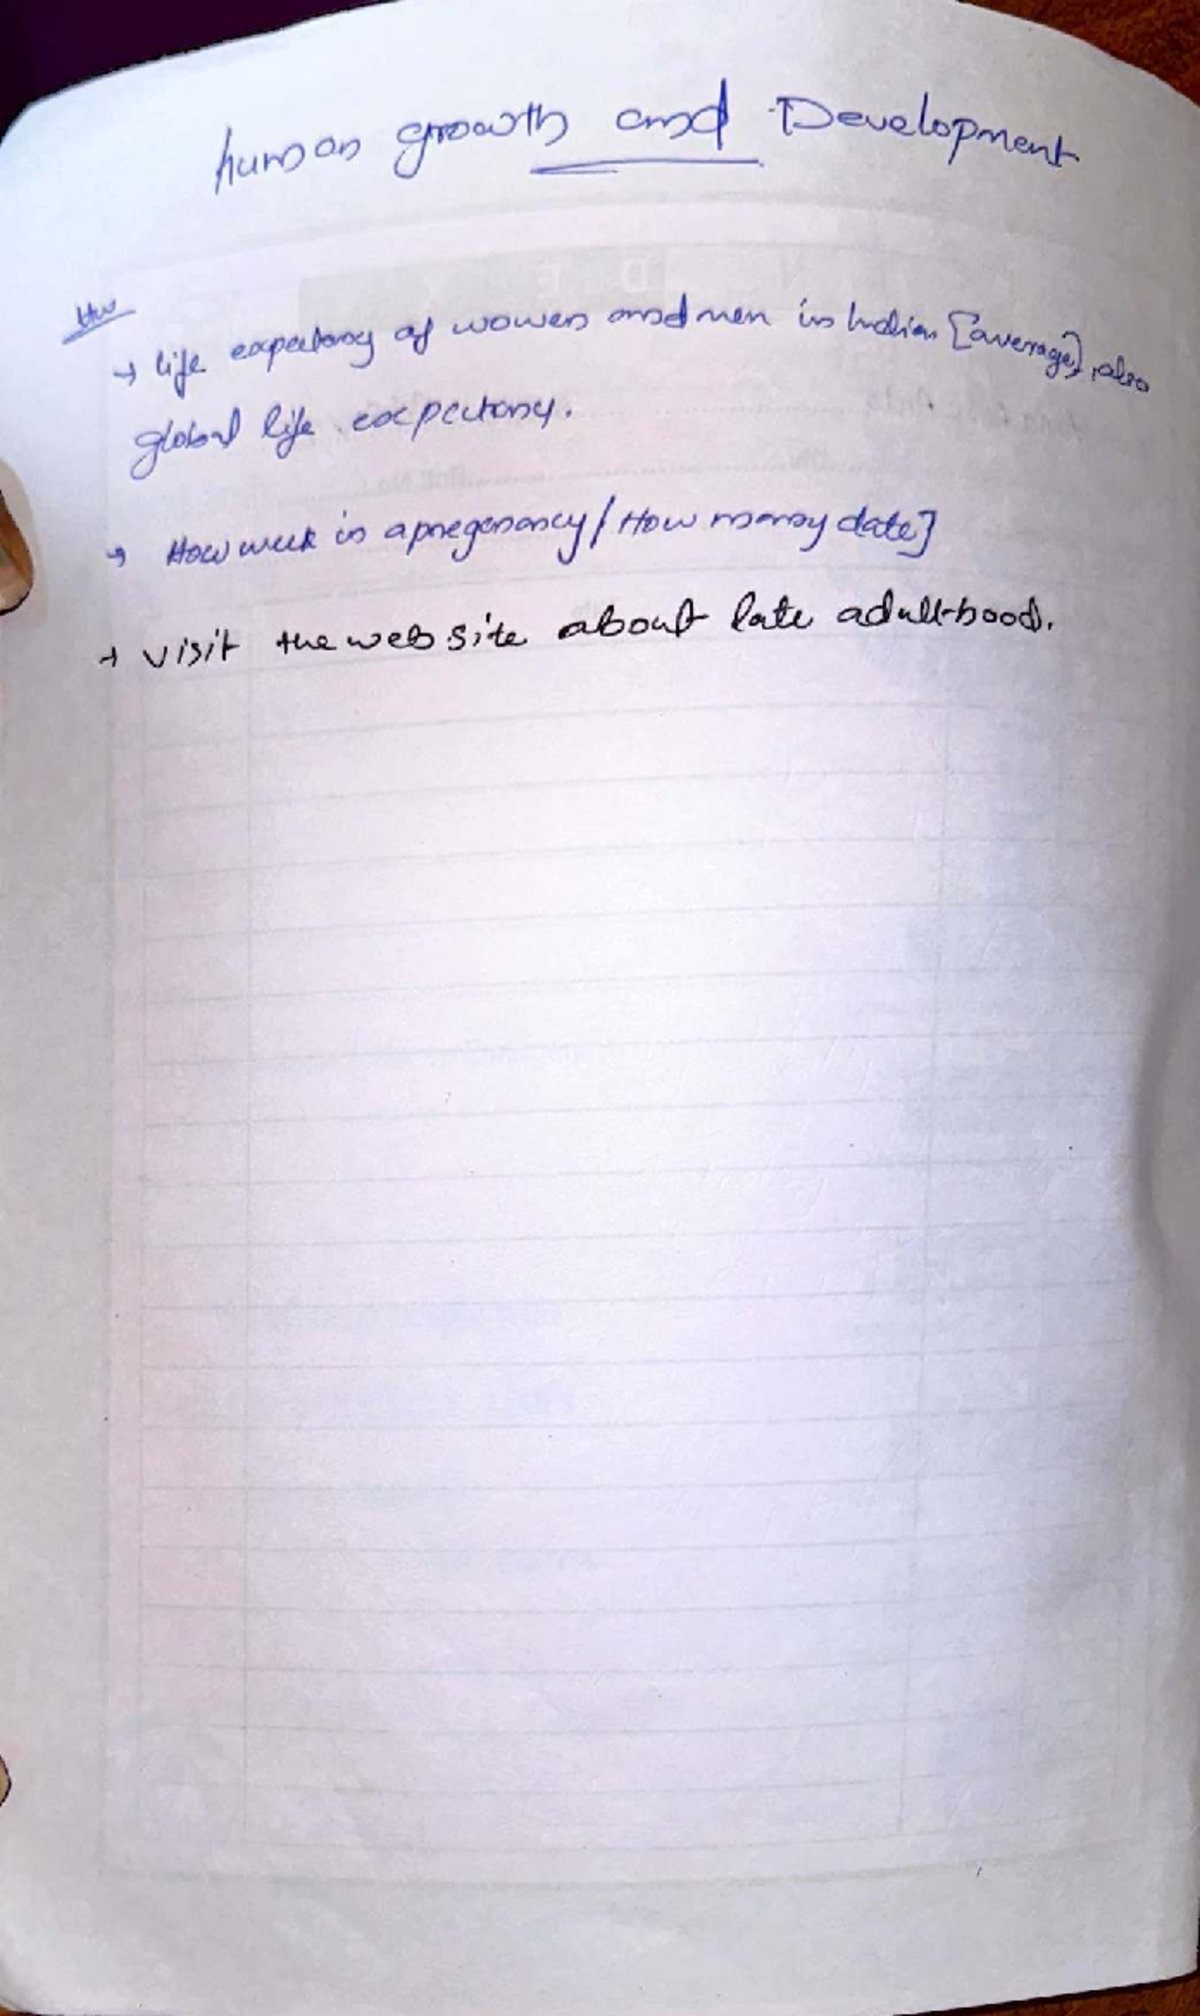 human growth and Development
HW
→ life expectancy of women and men in Indian [average], also
global life expectancy.
→ How week in a pregenancy / How many date]
→ visit the web site about late adulthood.